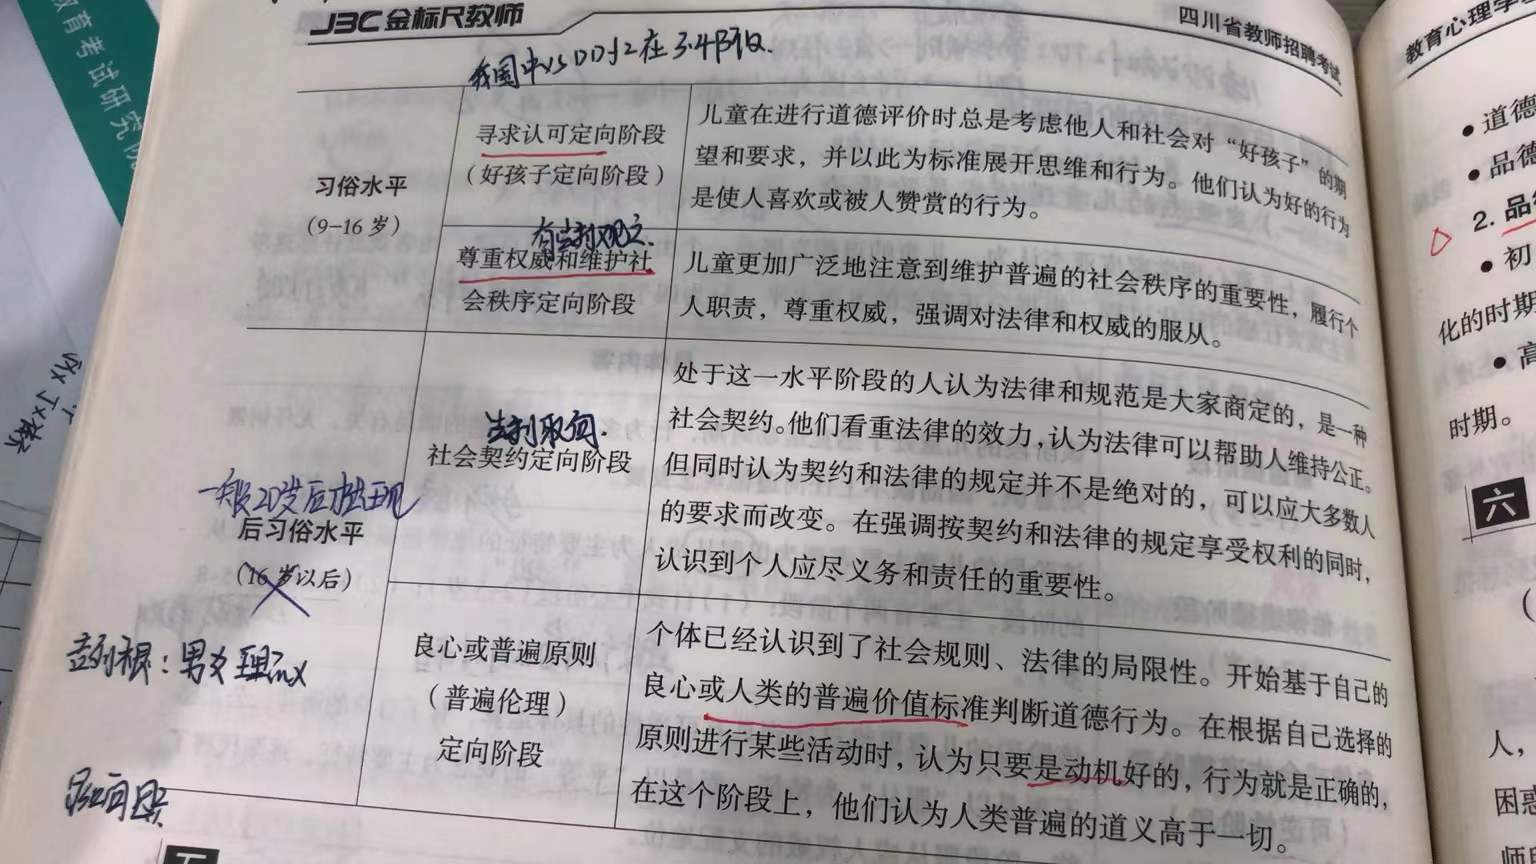 JBC金标尺教师
四川省教师招聘考试
教育考试研究院
我国中
在3.4阶段.
习俗水平
(9-16 岁)
寻求认可定向阶段
(好孩子定向阶段)
儿童在进行道德评价时总是考虑他人和社会对“好孩子”的期
望和要求，并以此为标准展开思维和行为。他们认为好的行为
是使人喜欢或被人赞赏的行为。
有法制观念.
尊重权威和维护社
会秩序定向阶段
儿童更加广泛地注意到维护普遍的社会秩序的重要性，履行个
人职责，尊重权威，强调对法律和权威的服从。
一般20岁后才出现
后习俗水平
(16 岁以后)
法制取向.
社会契约定向阶段
处于这一水平阶段的人认为法律和规范是大家商定的，是一种
社会契约。他们看重法律的效力，认为法律可以帮助人维持公正。
但同时认为契约和法律的规定并不是绝对的，可以应大多数人
的要求而改变。在强调按契约和法律的规定享受权利的同时，
认识到个人应尽义务和责任的重要性。
良心或普遍原则
(普遍伦理)
定向阶段
个体已经认识到了社会规则、法律的局限性。开始基于自己的
良心或人类的普遍价值标准判断道德行为。在根据自己选择的
原则进行某些活动时，认为只要是动机好的，行为就是正确的，
在这个阶段上，他们认为人类普遍的道义高于一切。
吉利根：男女
五
教育心理学
• 道德
• 品德
2. 品德
• 初
化的时期
• 高
时期。
六
人，
困惑